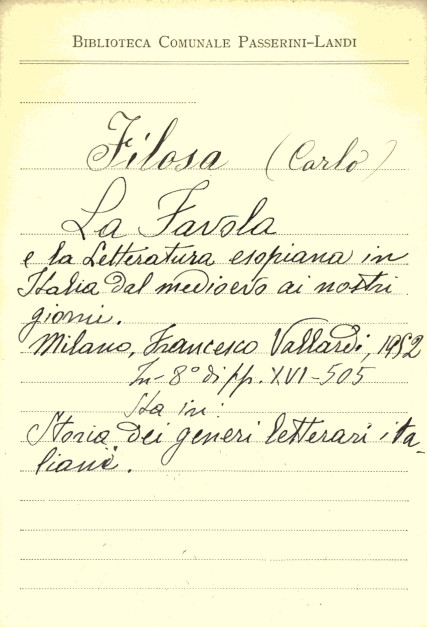 BIBLIOTECA COMUNALE PASSERINI-LANDI
Filosa (Carlo)
La Favola
e la Letteratura esopiana in
Italia dal medioevo ai nostri
giorni.
Milano, Francesco Vallardi, 1952
In-8° di pp. XVI-505
Sta in:
Storia dei generi letterari ita-
liani.